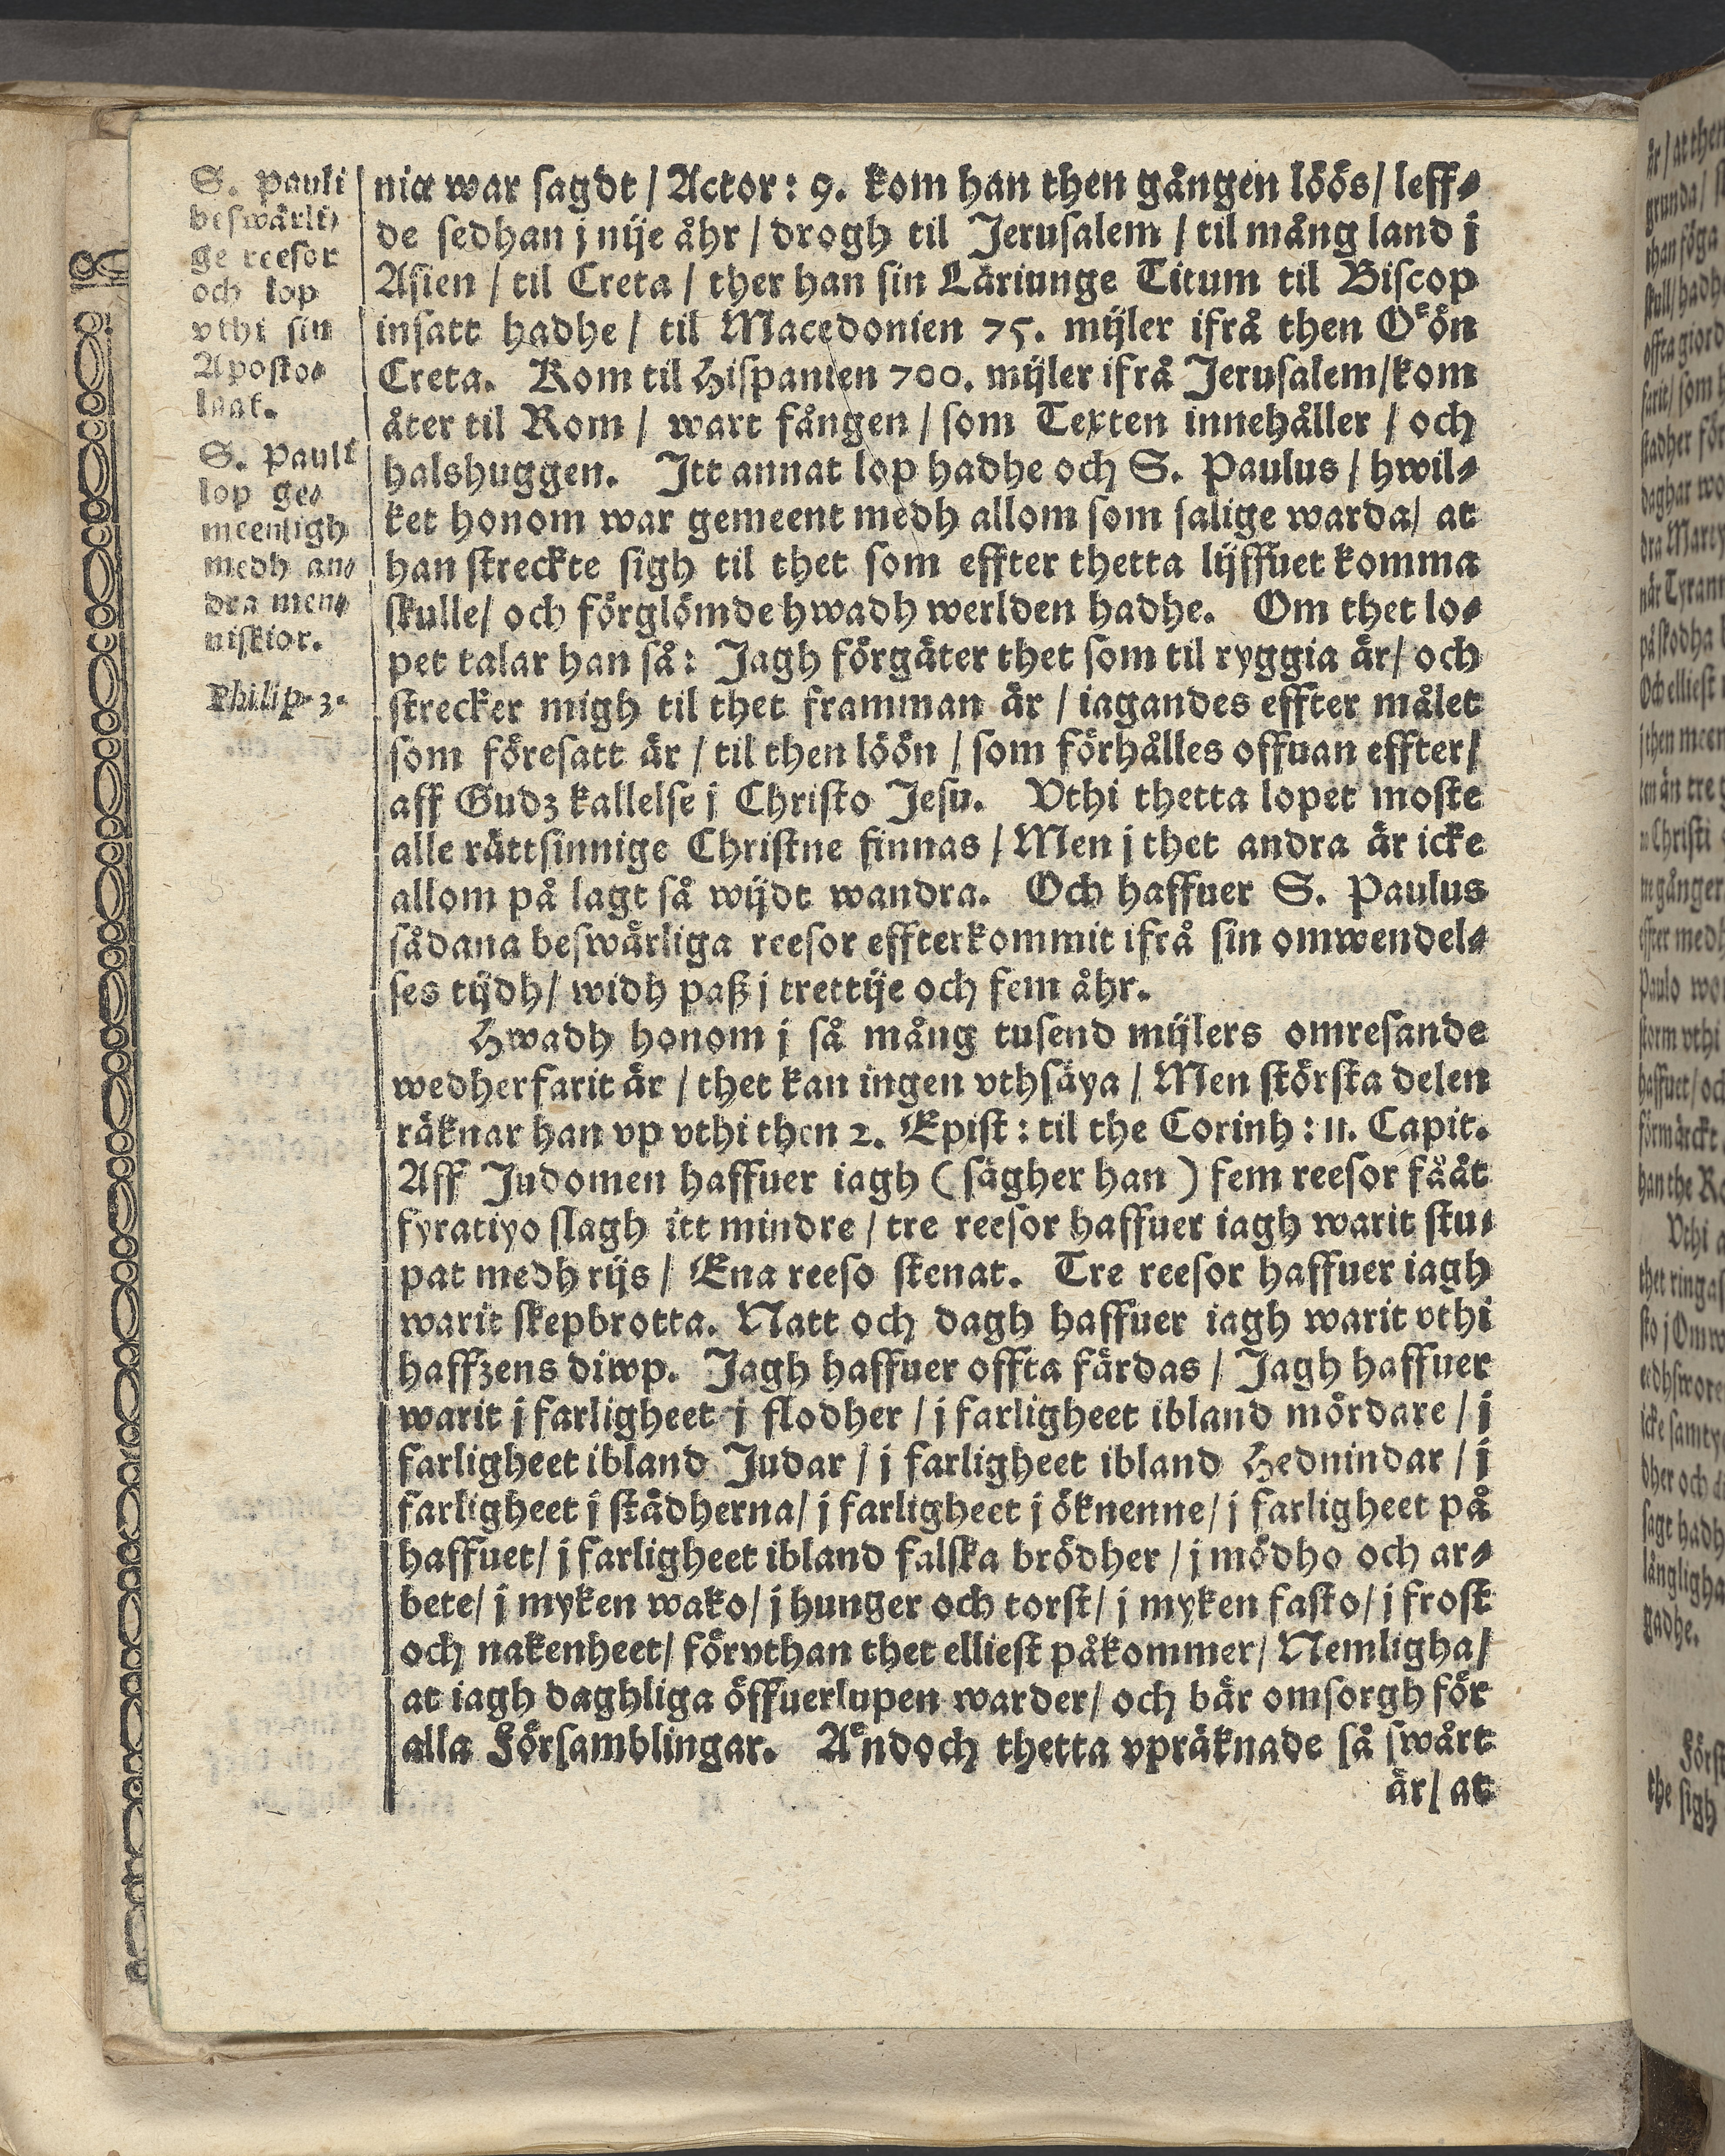 S. Pauli
beswärli⸗
ge reesor
och lop
vthi sin
Aposto⸗
laat.
S. Pauli
lop ge⸗
meenligh
medh an⸗
dra men⸗
niskior.
Philip. 3.
niæ war sagdt / Actor: 9. kom han then gången löös / leff⸗
de sedhan j nije åhr / drogh til Jerusalem / til mång land j
Asien / til Creta / ther han sin Läriunge Titum til Biscop
insatt hadhe / til Macedonien 75. mijler ifrå then Oͤön
Creta. Kom til Hispanien 700. mijler ifrå Jerusalem / kom
åter til Rom / wart fången / som Texten innehåller / och
halshuggen. Itt annat lop hadhe och S. Paulus / hwil⸗
ket honom war gemeent medh allom som salige warda / at
han streckte sigh til thet som effter thetta lijffuet komma
skulle / och förglömde hwadh werlden hadhe. Om thet lo⸗
pet talar han så: Jagh förgäter thet som til ryggia är / och
strecker migh til thet framman är / iagandes effter målet
som föresatt är / til then löön / som förhålles offuan effter /
aff Gudz kallelse j Christo Jesu. Vthi thetta lopet moste
alle rättsinnige Christne finnas / Men j thet andra är icke
allom på lagt så wijdt wandra. Och haffuer S. Paulus
sådana beswärliga reesor effterkommit ifrå sin omwendel⸗
ses tijdh / widh paß j trettije och fem åhr.
Hwadh honom j så mång tusend mijlers omresande
wedherfarit är / thet kan ingen vthsäya / Men största delen
räknar han vp vthi then 2. Epist: til the Corinh: 11. Capit.
Aff Judomen haffuer iagh (sägher han) fem reesor fååt
fyratiyo slagh itt mindre / tre reesor haffuer iagh warit stu⸗
pat medh rijs / Ena reeso stenat. Tre reesor haffuer iagh
warit skepbrotta. Natt och dagh haffuer iagh warit vthi
haffzens diwp. Jagh haffuer offta färdas / Jagh haffuer
warit j farligheet j flodher / j farligheet ibland mördare / j
farligheet ibland Judar / j farligheet ibland Hednindar / j
farligheet j städherna / j farligheet j öknenne / j farligheet på
haffuet / j farligheet ibland falska brödher / j mödho och ar⸗
bete / j myken wako / j hunger och torst / j myken fasto / j frost
och nakenheet / förvthan thet elliest påkommer / Nemligha /
at iagh daghliga öffuerlupen warder / och bär omsorgh för
alla Församblingar. Aͤndoch thetta vpräknade så swårt
är / at